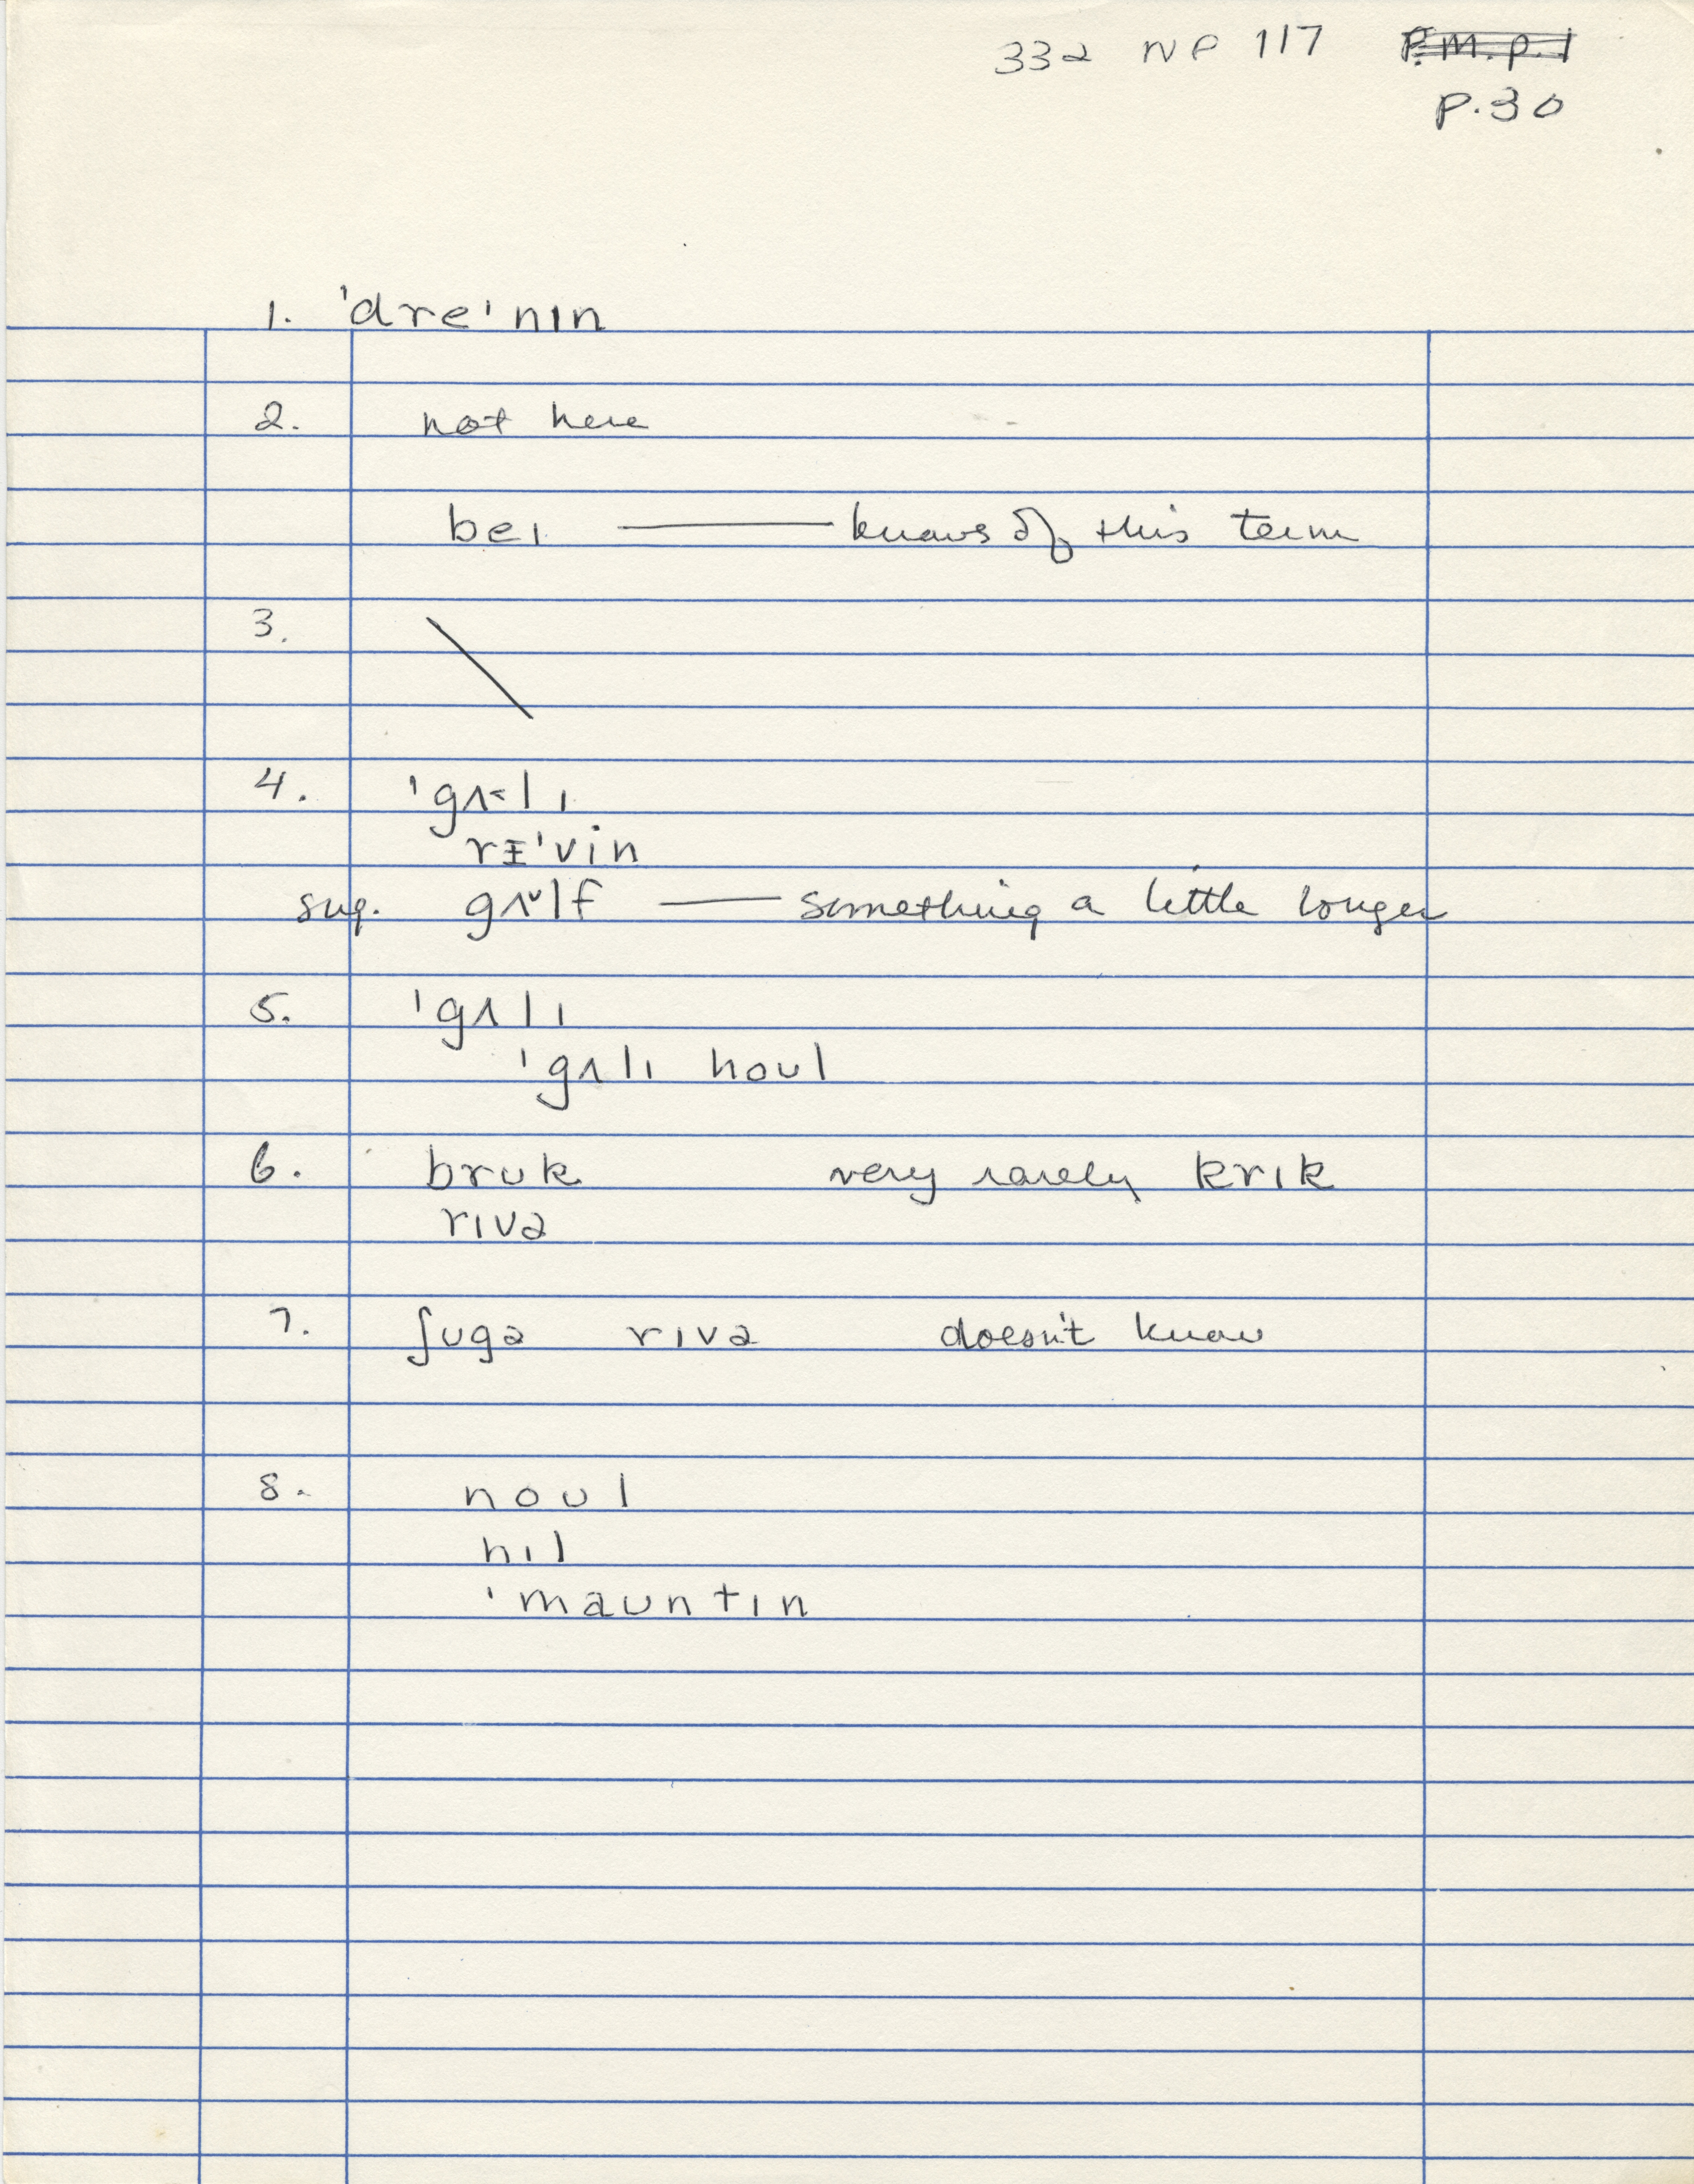 332 NP 117 P.M.p.1
p.30
1. 'dreɪ'nɪn
2. not here
beɪ —— knows of this term
3. \
4. 'gʌ˂lɪ
rɪ'vin
sug. gʌ˅lf —— something a little longer
5. 'gʌlɪ
'gʌlɪ houl
6. bruk very rarely krɪk
rɪvə
7. ʃugə rɪvə doesn't know
8. noul
hɪl
'mauntɪn